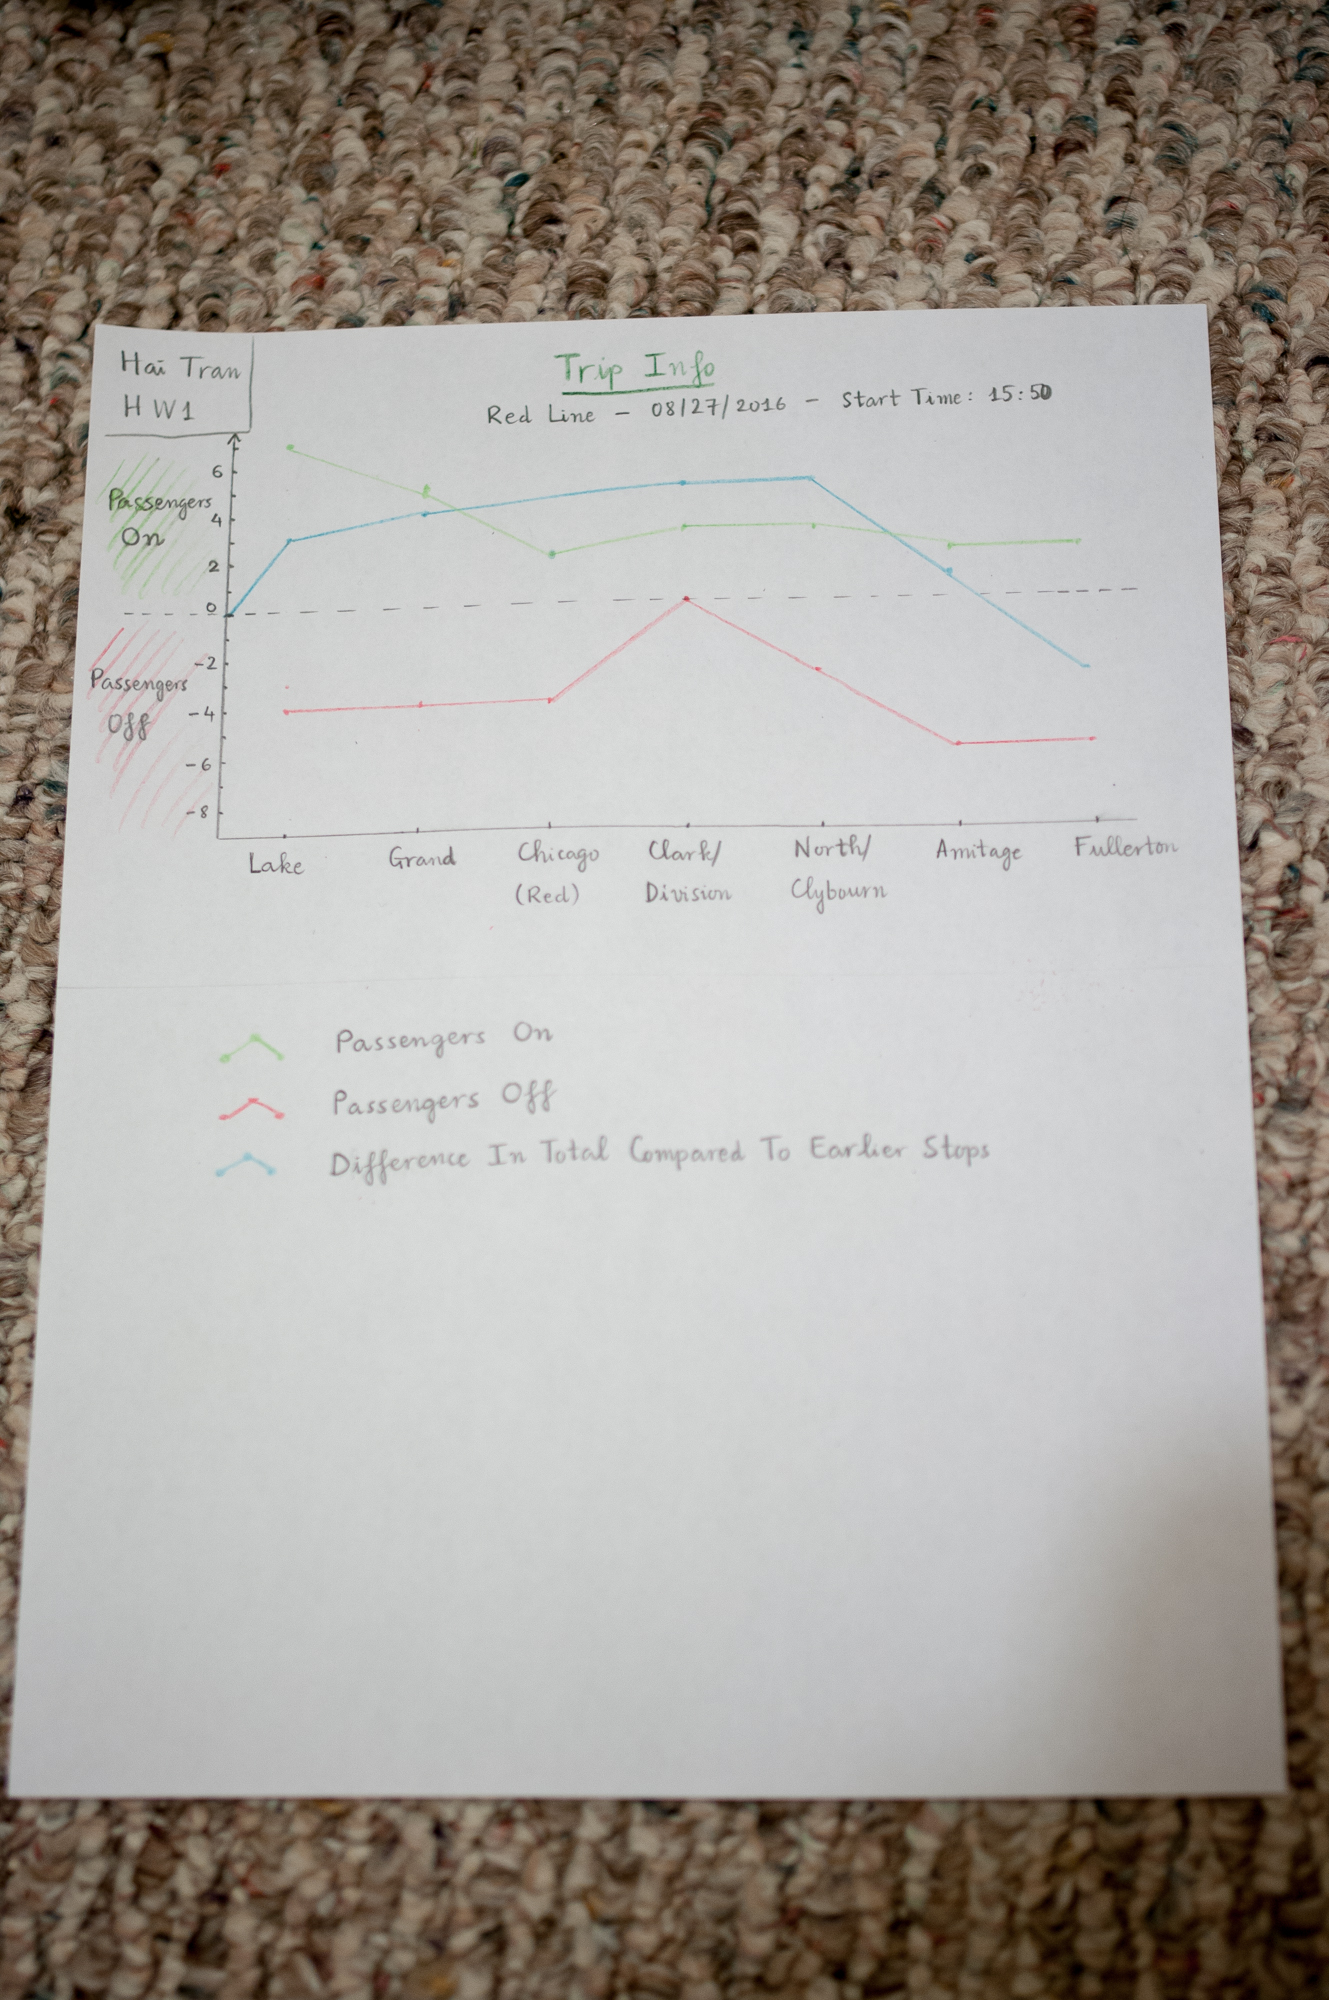 Hai Tran
HW1
Trip Info
Red Line - 08/27/2016 - Start Time: 15:50
Passengers
On
6
4
2
0
Passengers
Off
-2
-4
-6
-8
Lake
Grand
Chicago
(Red)
Clark/
Division
North/
Clybourn
Amitage
Fullerton
Passengers On
Passengers Off
Difference In Total Compared To Earlier Stops